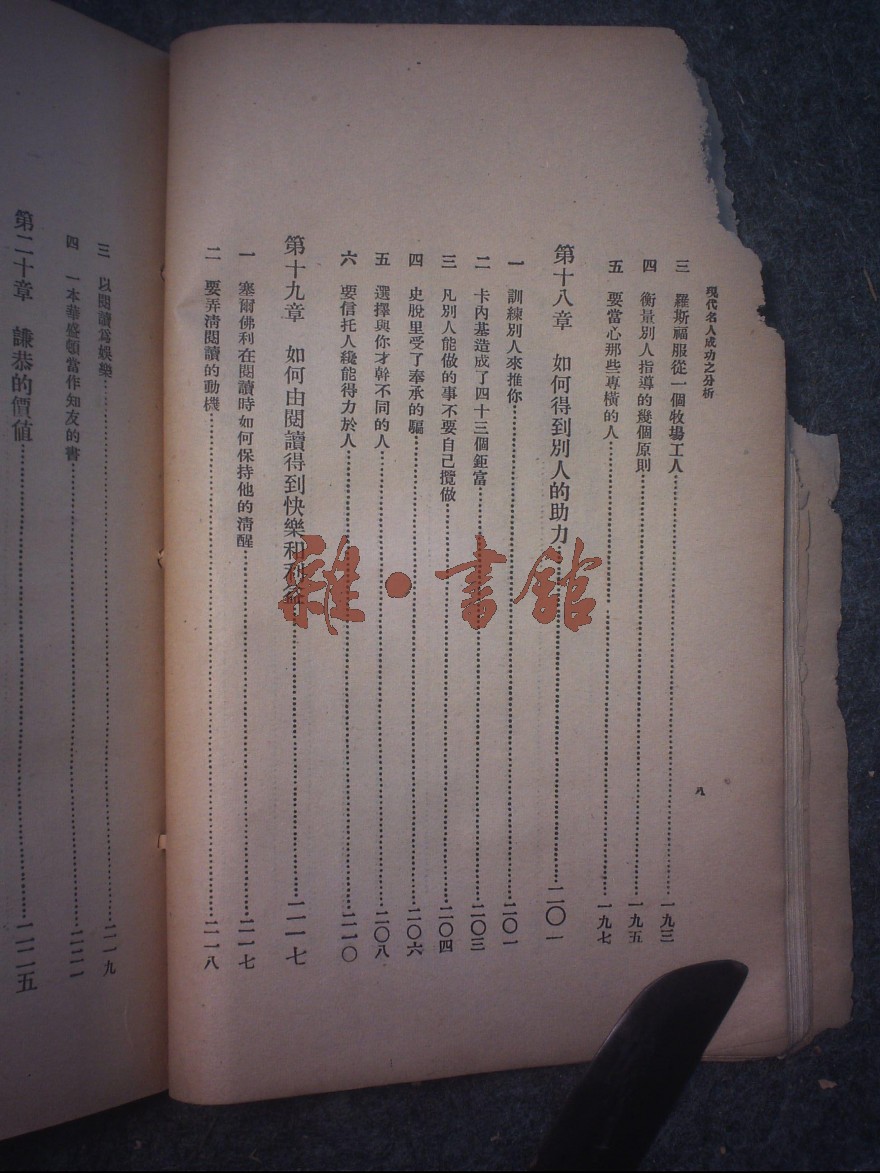 現代名人成功之分析
八
三 羅斯福服從一個牧場工人……一九三
四 衡量別人指導的幾個原則……一九五
五 要當心那些專橫的人……一九七
第十八章 如何得到別人的助力……二〇一
一 訓練別人來推你……二〇一
二 卡內基造成了四十三個鉅富……二〇三
三 凡別人能做的事不要自己攬做……二〇四
四 史脫里受了奉承的騙……二〇六
五 選擇與你才幹不同的人……二〇八
六 要信托人纔能得力於人……二一〇
第十九章 如何由閱讀得到快樂和利益……二一七
一 塞爾佛利在閱讀時如何保持他的清醒……二一七
二 要弄清閱讀的動機……二一八
三 以閱讀爲娛樂……二一九
四 一本華盛頓當作知友的書……二二一
第二十章 謙恭的價値……二二五
雜·書館